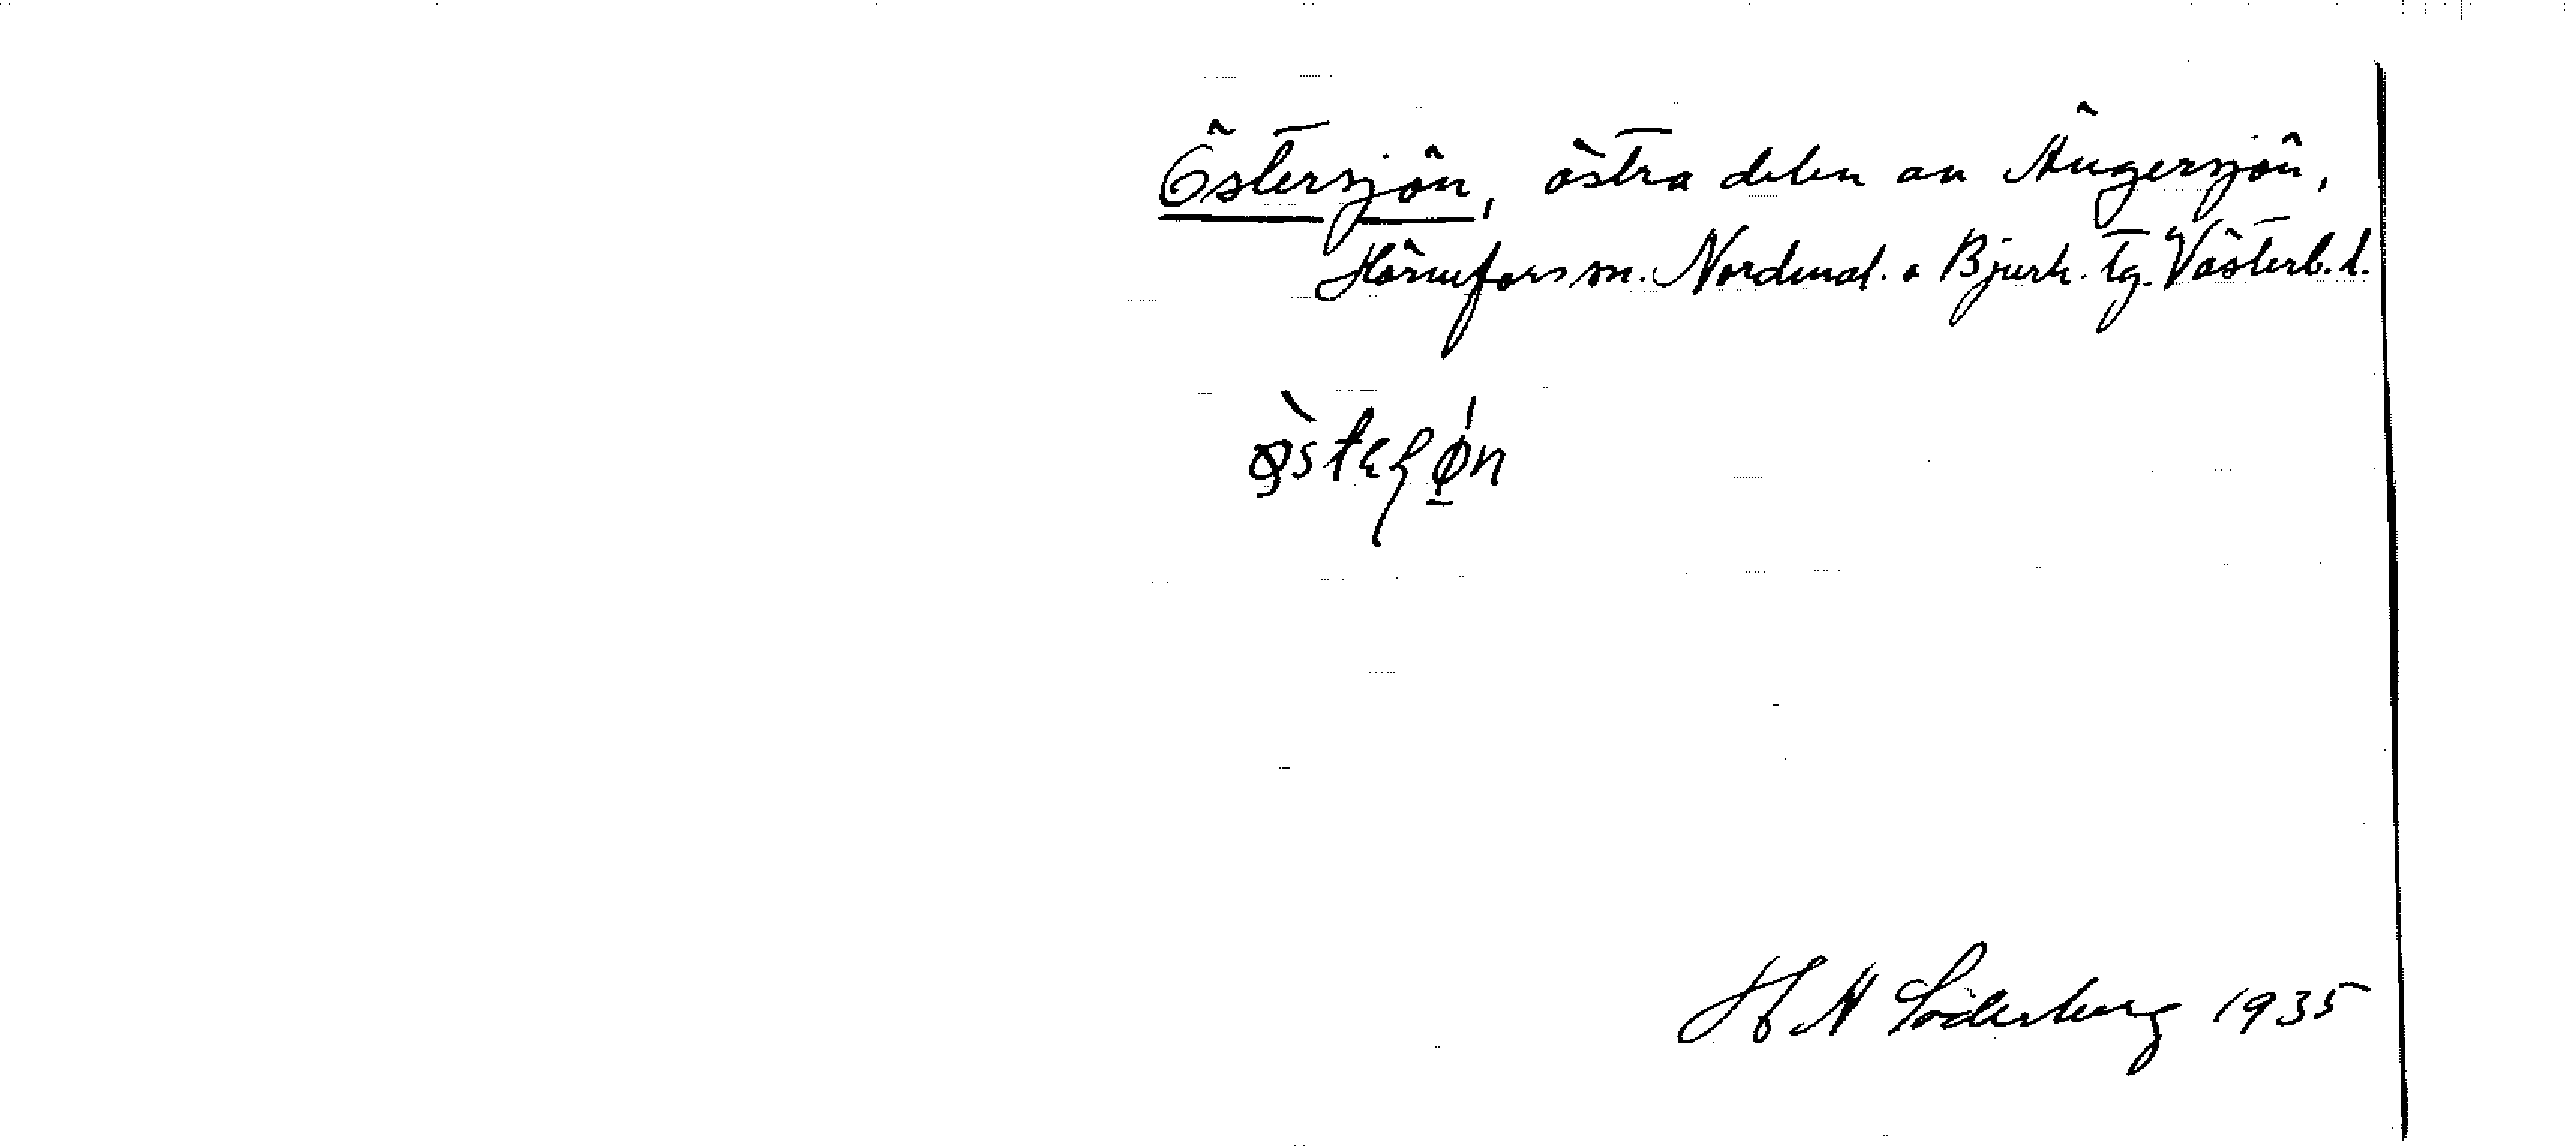 Östersjön, östra delen av Ängersjön,
Hörnefors sn. Nordmal. o Bjurh. tg. Västerb. l.
H A Söderberg 1935